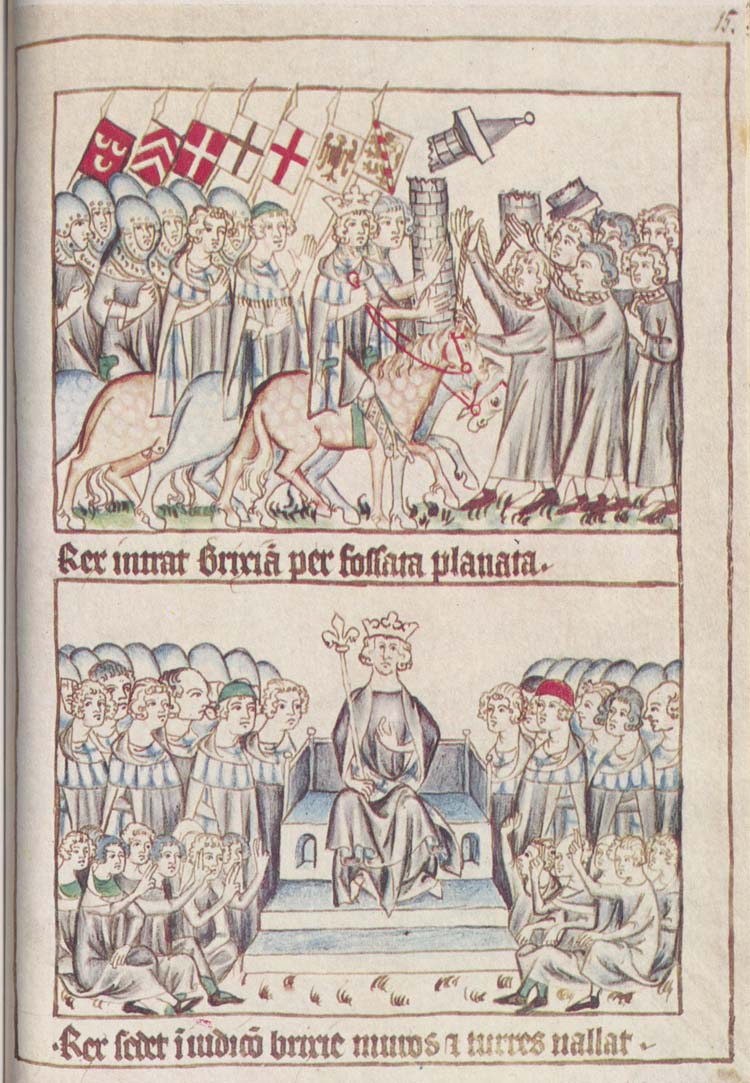 15.
Rex intrat Brixiā per fossata planata.
Rex sedet ī iudicō brixie muros ⁊ turres uallat.